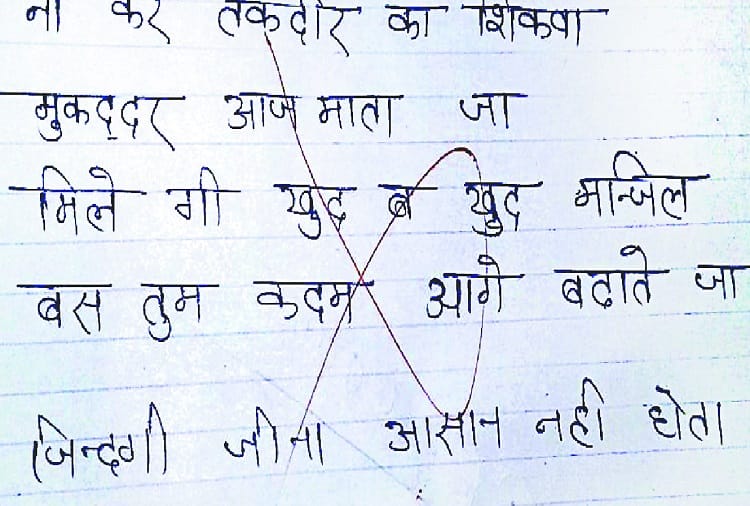 ना कर तकदीर का शिकवा
मुकद्दर आज माता जा
मिले गी खुद ब खुद मन्जिल
बस तुम कदम आगे बढाते जा
जिन्दगी जीना आसान नही होता